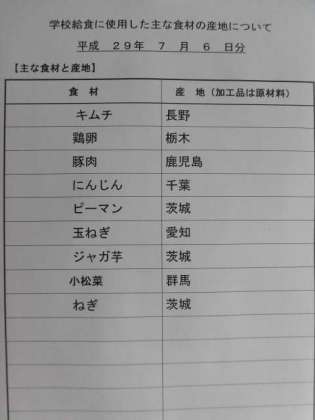 学校給食に使用した主な食材の産地について
平成 29年 7 月 6 日分
【主な食材と産地】
食 材 産 地（加工品は原材料）
キムチ 長野
鶏卵 栃木
豚肉 鹿児島
にんじん 千葉
ピーマン 茨城
玉ねぎ 愛知
ジャガ芋 茨城
小松菜 群馬
ねぎ 茨城